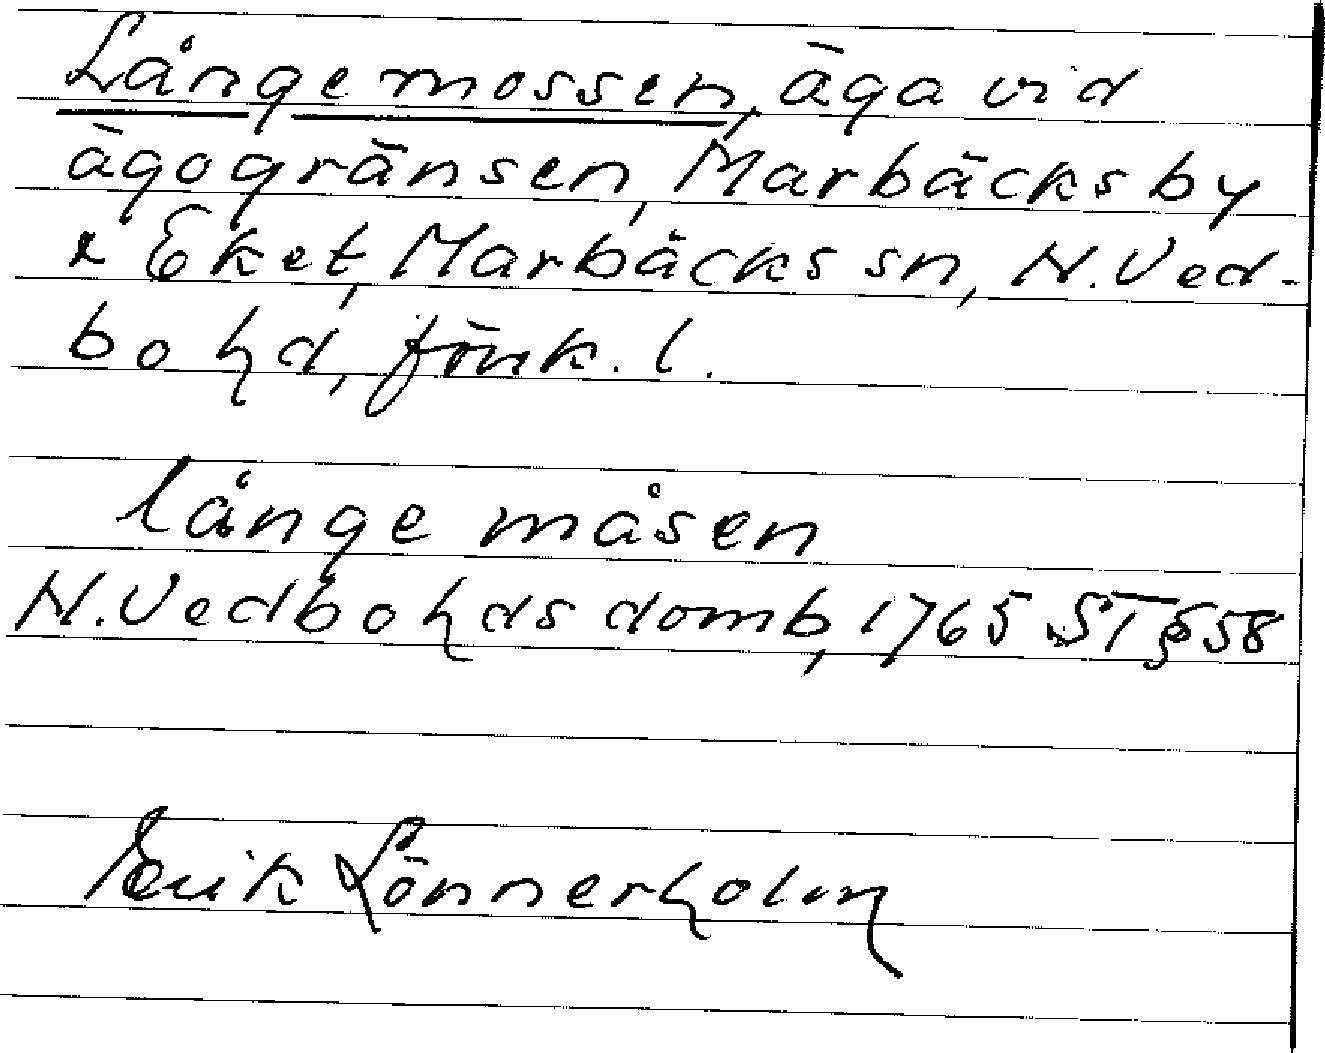 Långemossen, äga vid
ägogränsen, Marbäcks by
x Eket, Marbäcks sn, N. Ved-
bo hd, Jönk. l.
långe måsen
N. Vedbo hds domb, 1765 ST § 58
Erik Lönnerholm